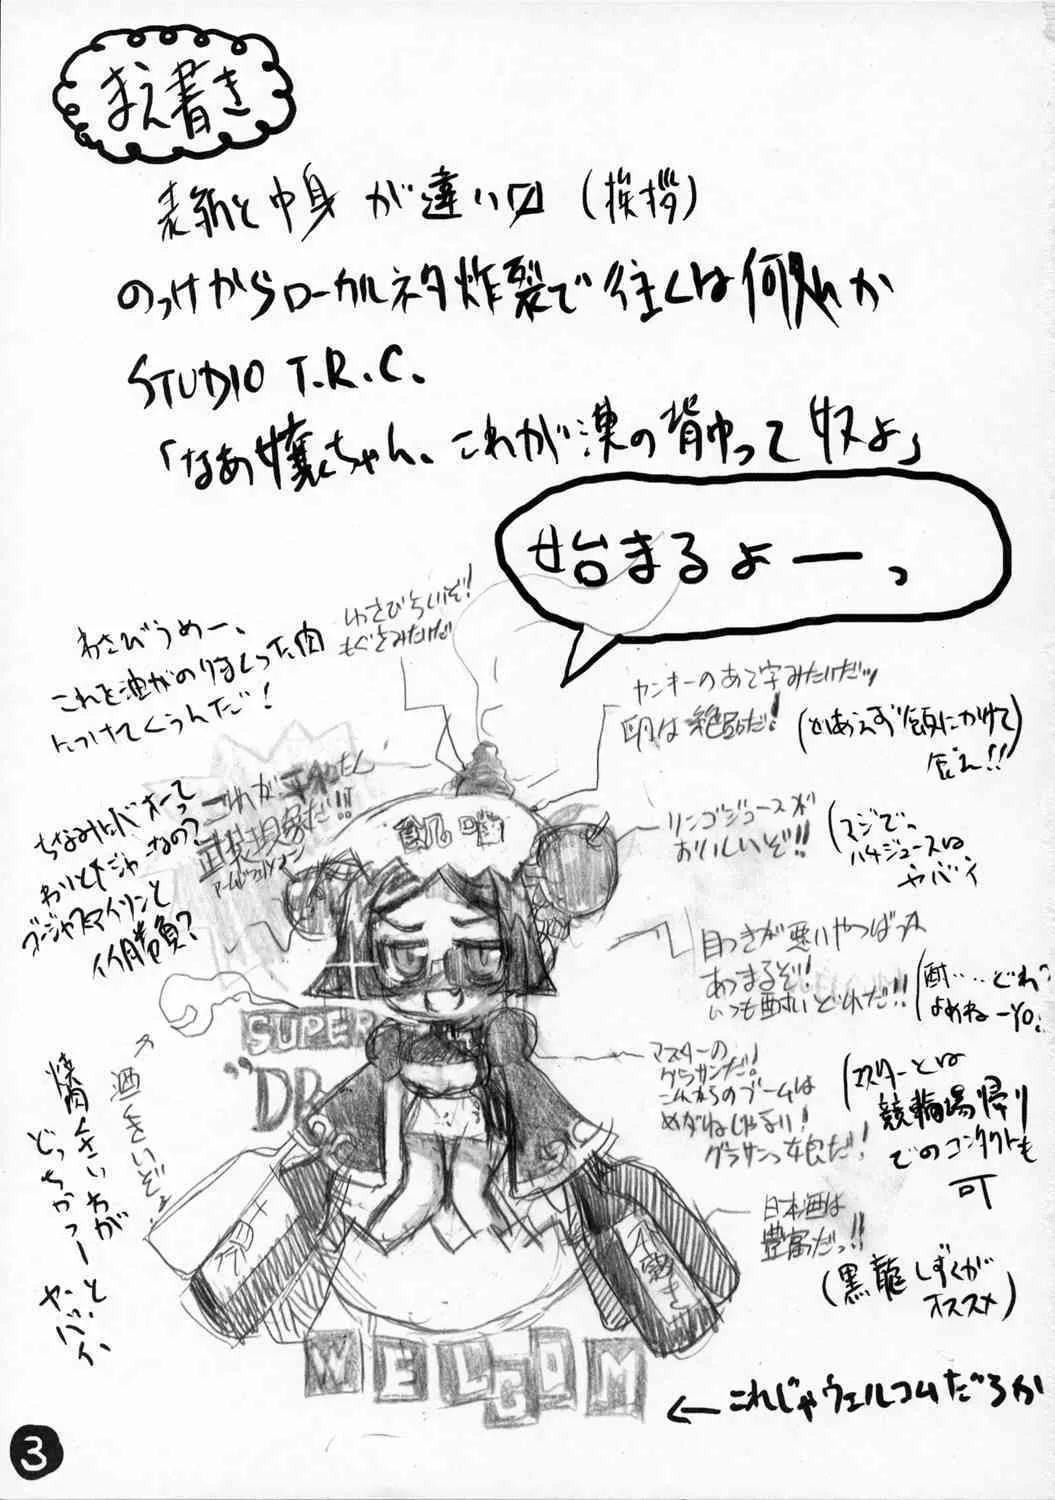 まえ書き
表紙と中身が違い〼(挨拶)
のっけからローカルネタ炸裂で往くは何処か
STUDIO T.R.C.
「なあ嬢ちゃん、これが漢の背中って奴よ」
始まるよーっ
わさびちいぞ!
もぐさみたいだ
わさびうめー、
これを油がのりまくった肉
につけてくうんだ!
ヤンキーのあて字みたいだッ
卵は絶品だ!
(とりあえず飯にかけて
食え!!)
これが平和たん
武装現象だ!!
アームドフェノメノン
ちなみにバオーって
わりとドジャーなの?
ブージャムアイリンと
イイ勝負?
飢嘴
リンゴジュースが
おいしいぞ!!
(スジでっ
ハチジュースは
ヤバイ
目つきが悪いやつばっか
あつまるぞ!
いつも酔いどれだ!!
(酎‥‥どれ?
よめねーYO!
SUPER
"DR
マスターの
グラサンだ!
これからのブームは
めがねじゃない!
グラサンっ娘だ!
(マスターとは
競輪場帰り
でのコンタクトも
可
酒くさいぞぉ
焼肉くさいわが
どっちかっーと
ヤバイ
日本酒は
豊富だっ!!
(黒龍しずくが
オススメ)
WELCOM
← これじゃウェルコムだろか
3